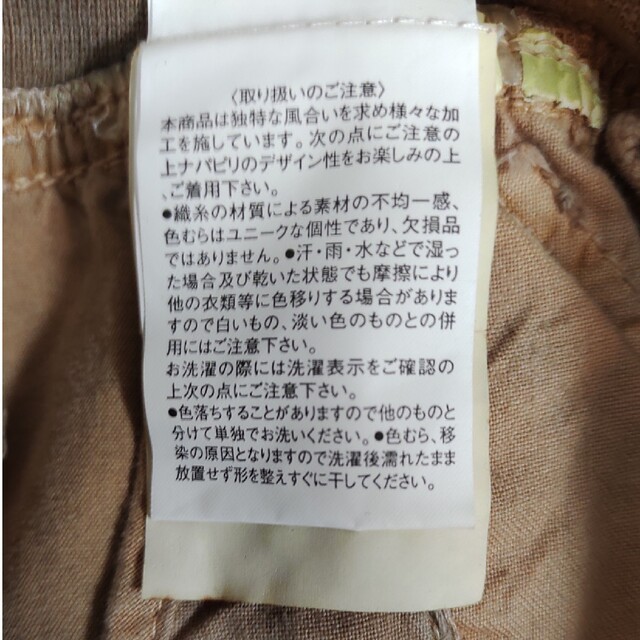 〈取り扱いのご注意〉
本商品は独特な風合いを求め様々な加
工を施しています。次の点にご注意の
上ナパピリのデザイン性をお楽しみの上
、ご着用下さい。
●織糸の材質による素材の不均一感、
色むらはユニークな個性であり、欠損品
ではありません。●汗・雨・水などで湿っ
た場合及び乾いた状態でも摩擦により
他の衣類等に色移りする場合がありま
すので白いもの、淡い色のものとの併
用にはご注意下さい。
お洗濯の際には洗濯表示をご確認の
上次の点にご注意下さい。
●色落ちすることがありますので他のものと
分けて単独でお洗いください。●色むら、移
染の原因となりますので洗濯後濡れたまま
放置せず形を整えすぐに干してください。